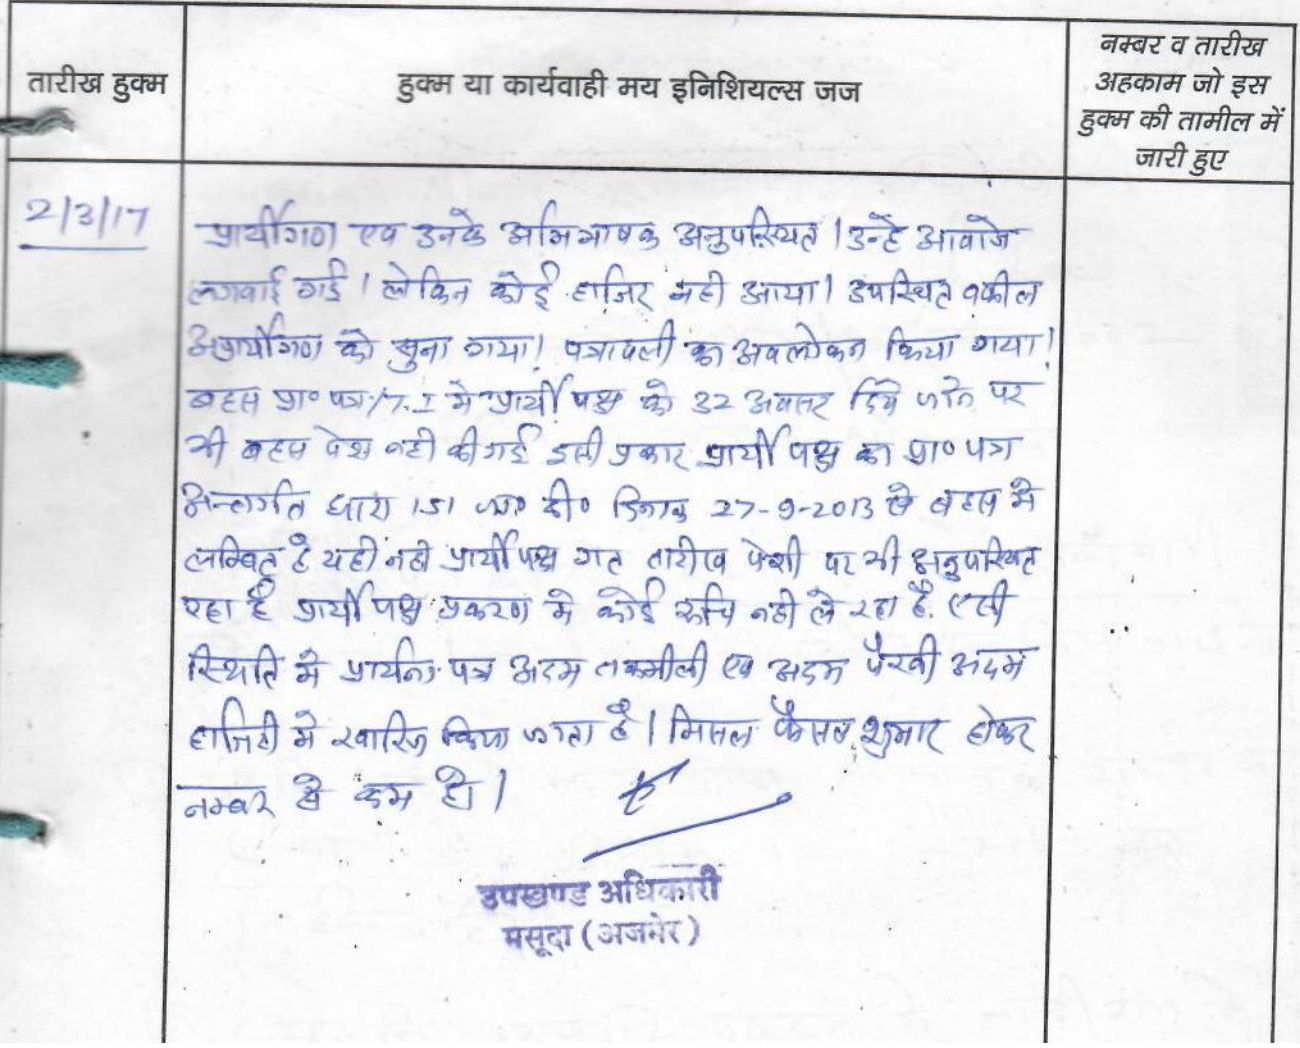 तारीख हुक्म
हुक्म या कार्यवाही मय इनिशियल्स जज
नम्बर व तारीख
अहकाम जो इस
हुक्म की तामील में
जारी हुए
2/3/17
प्रार्थीगण एव उनके अभिभाषक अनुपस्थित । उन्हे आवाजे
लगवाई गई । लेकिन कोई हाजिर नही आया । उपस्थित वकील
अप्रार्थीगण को सुना गया । पत्रावली का अवलोकन किया गया ।
बहस प्रा० पत्र T.I मे प्रार्थी पक्ष को 32 अवसर दिये जाने पर
भी बहस पेश नही की गई इसी प्रकार प्रार्थी पक्ष का प्रा० पत्र
अन्तर्गत धारा 151 जा० दी० दिनांक 27-9-2013 से बहस मे
लम्बित है यही नही प्रार्थी पक्ष गत तारीख पेशी पर भी अनुपस्थित
रहा है प्रार्थी पक्ष प्रकरण मे कोई रूचि नही ले रहा है. एसी
स्थिति मे प्रार्थना पत्र अदम तकमीली एव अदम पैरवी अदम
हाजिरी मे खारिज किया जाता है । मिसल फैसल शुमार होकर
नम्बर से कम हो ।
उपखण्ड अधिकारी
मसूदा (अजमेर)